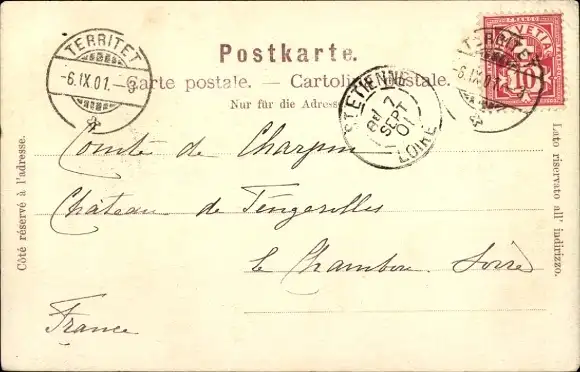 TERRITET
-6.IX.01.-8
Postkarte.
Carte postale. — Cartolina postale.
Nur für die Adresse
HELVETIA
FRANCO
10
TERRITET
-6.IX.01.
ST ETIENNE
7
SEPT
01
LOIRE
Côté réservé à l'adresse.
Lato riservato all' indirizzo.
Comte de Charpin
Château de Feugerolles
le Chambon. Loire
France